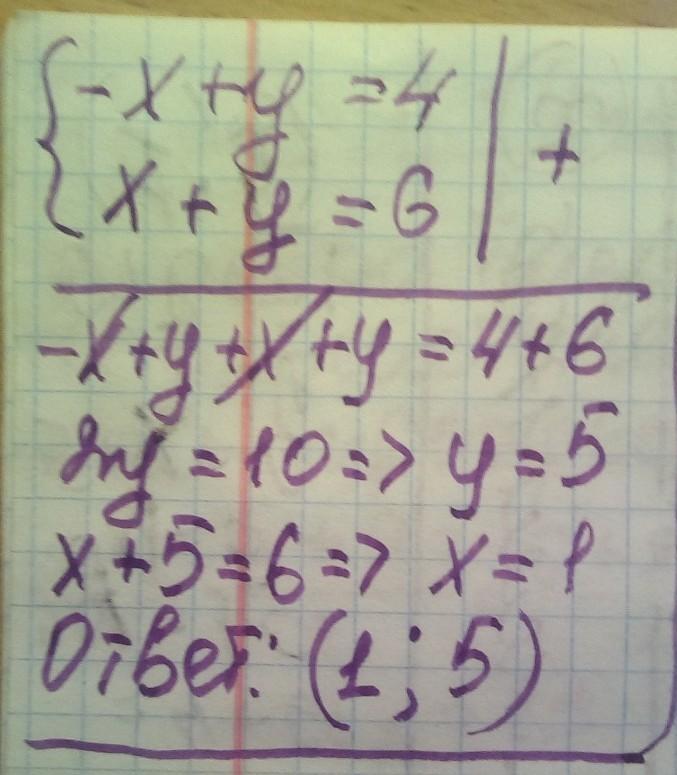 {-x + y = 4 | +
x + y = 6
-x + y + x + y = 4 + 6
2y = 10 => y = 5
x + 5 = 6 => x = 1
Ответ: (1; 5)